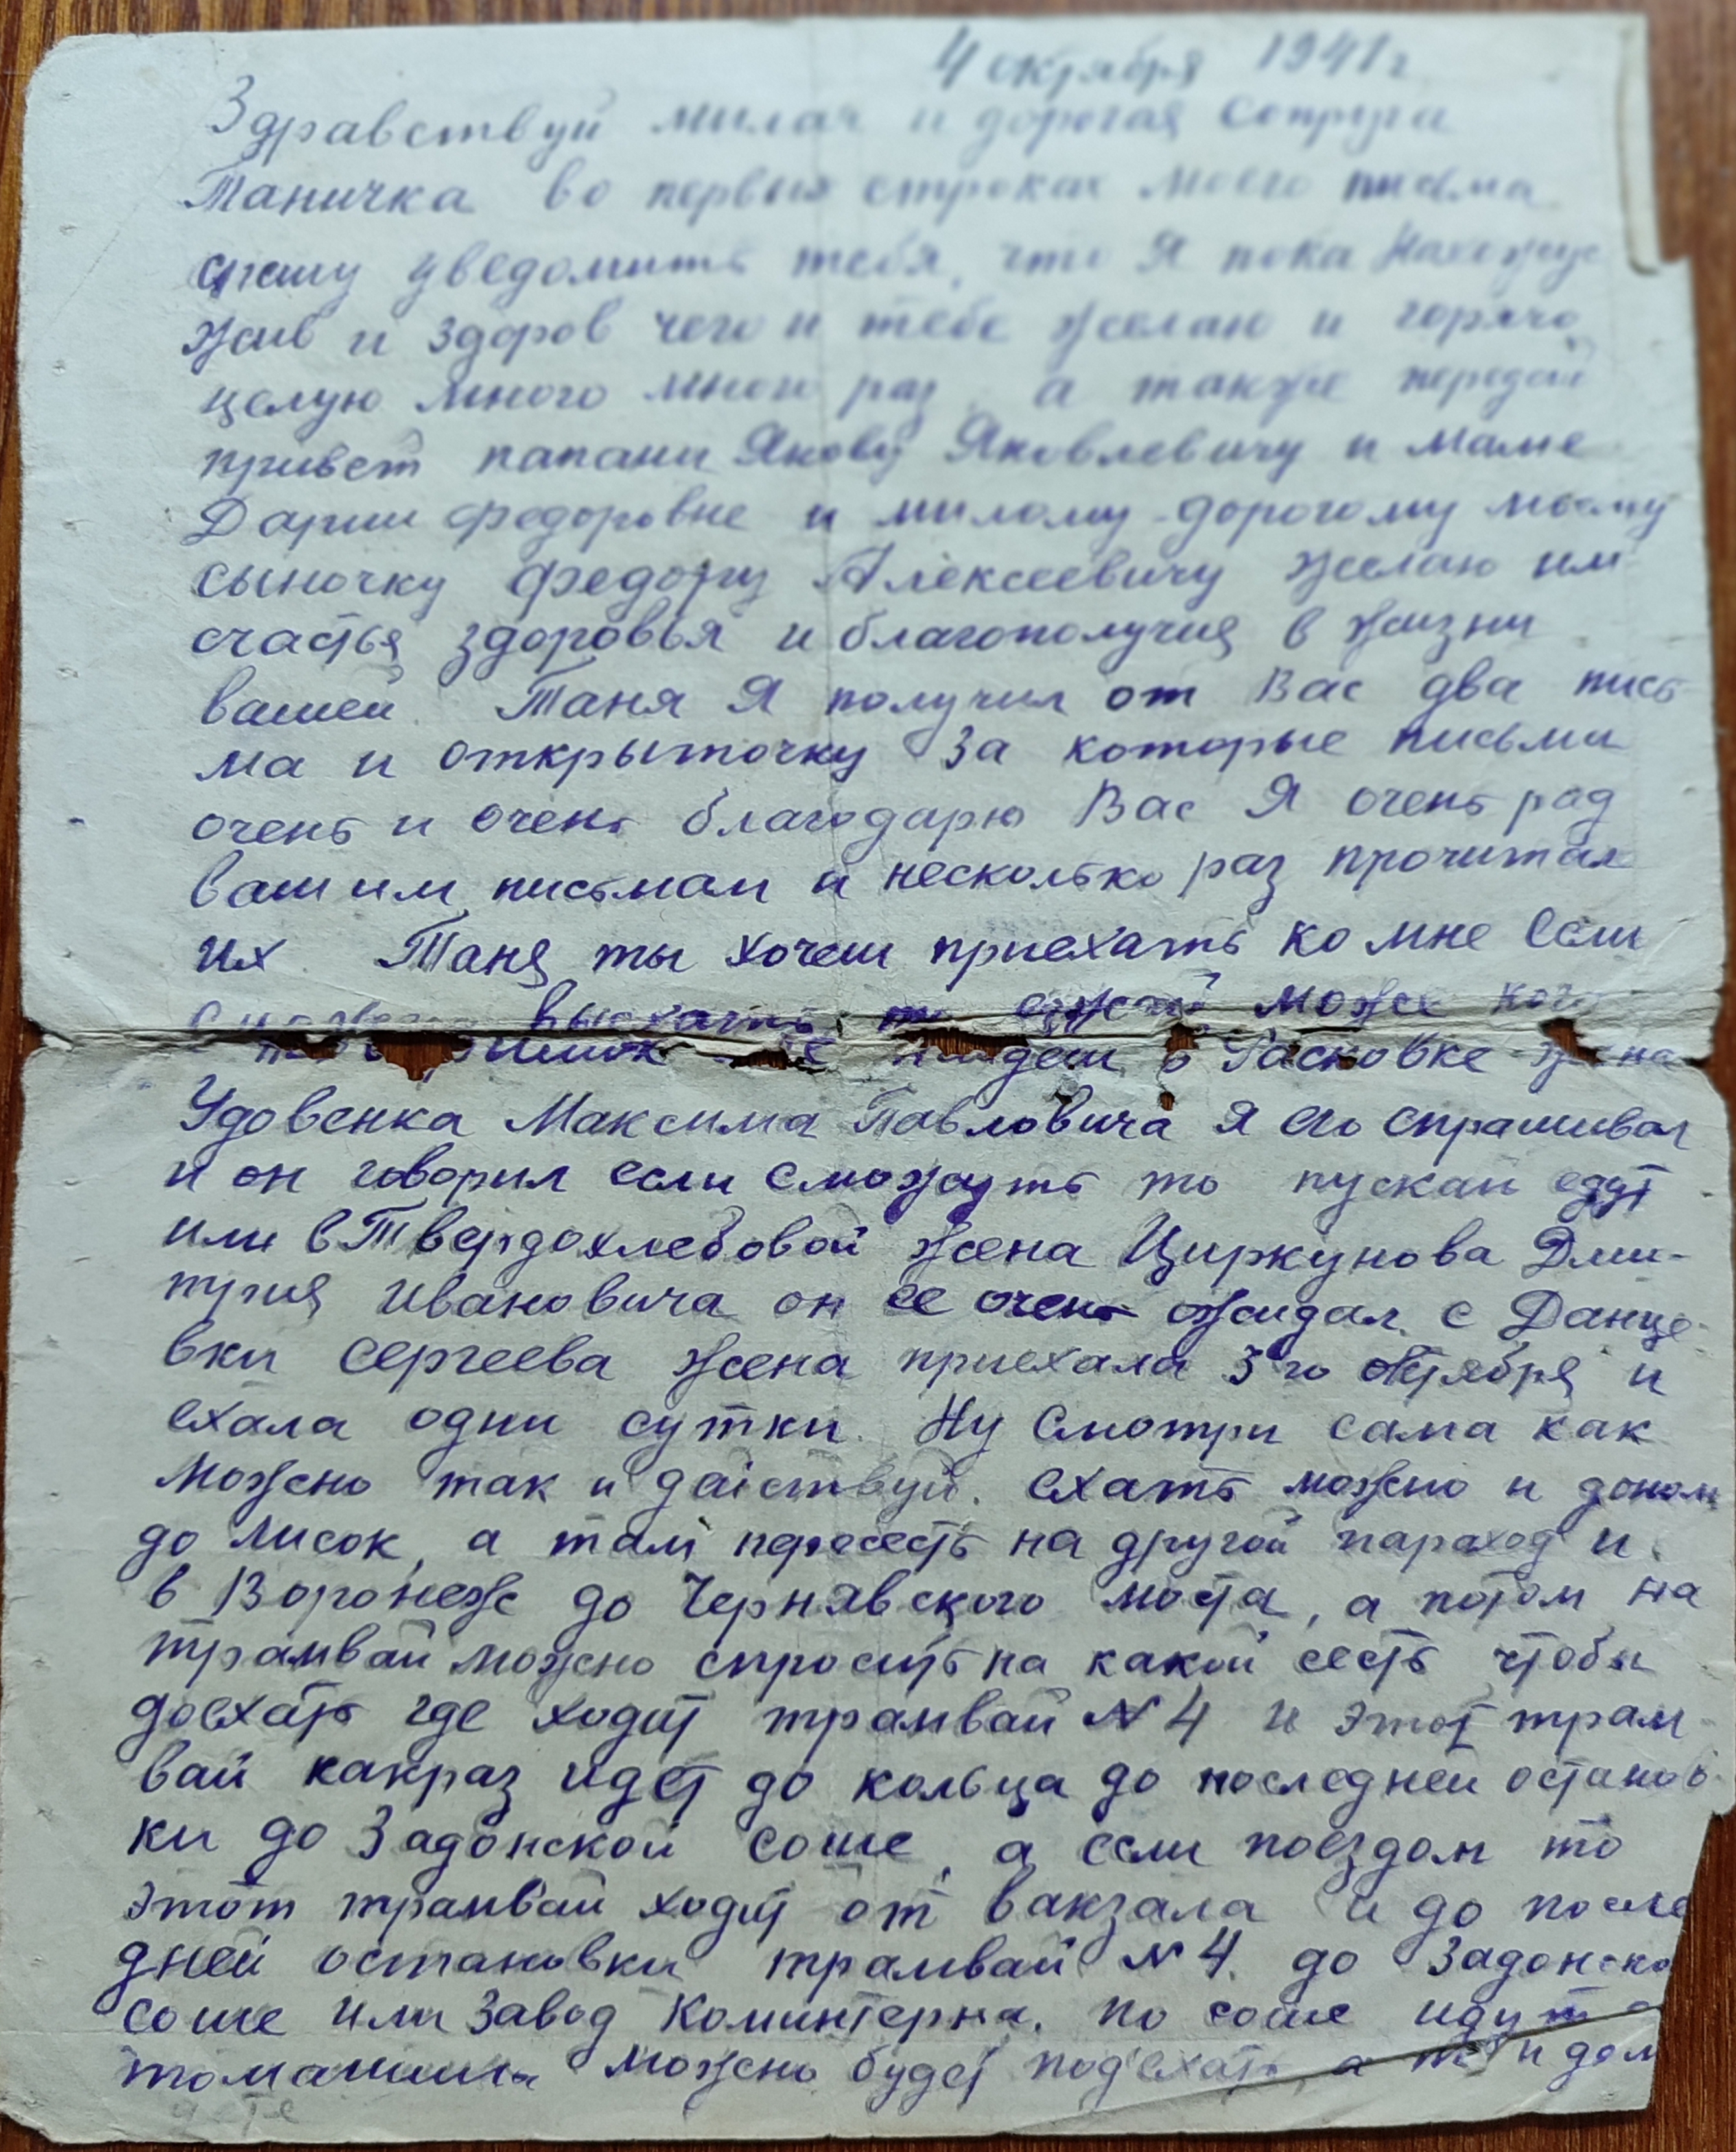 4 октября 1941 г
Здравствуй милая и дорогая Сопруга
Таничка во первых строках моего письма
спешу уведомить тебя, что Я пока нахожус
жив и здоров чего и тебе желаю и горячо
целую много много раз а также передай
привет папани Якову Яковлевичу и маме
Дарии Федоровне и милому дорогому моему
сыночку Федору Алексеевичу желаю им
счастья здоровья и благополучия в жизни
вашей. Таня Я получил от Вас два пись
ма и открыточку За которые письма
очень и очень благодарю Вас Я очень рад
вашим письмам и несколько раз прочитал
их. Таня ты хочеш приехать ко мне если
выехать то езжай може кого
в Расковке жена
Удовенка Максима Павловича Я его спрашивал
и он говорил если сможуть то пускай едут
или в Твердохлебовой жена Циркунова Дми-
трия Ивановича он ее очень ожидал. с Данце-
вки Сергеева жена приехала 3го октября и
ехала одни сутки. Ну смотри сама как
можно так и действуй. ехать можно и доном
до Лисок, а там пересесть на другой параход и
в Воронеж до Чернявского моста, а потом на
трамвай можно спросить на какой сесть чтобы
доехать где ходит трамвай № 4 и этот трам-
вай какраз идет до кольца до последней останов-
ки до Задонской соше, а если поездом то
этот трамвай ходит от вакзала и до после
дней остановки трамвай № 4. до Задонско
соше или завод Коминтерна. по соше идут а
томашины можно будет подъехать, а то и дом